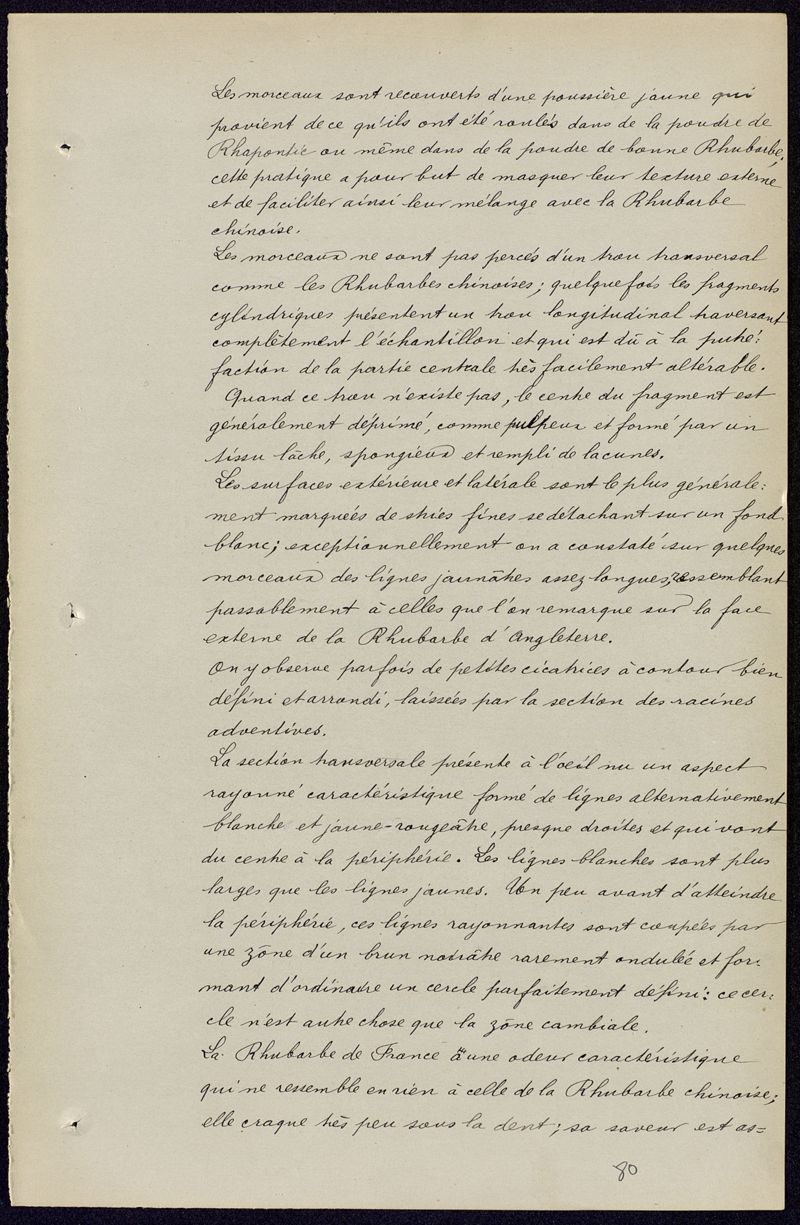 Les morceaux sont recouverts d'une poussière jaune qui
provient de ce qu'ils ont été roulés dans de la poudre de
Rhapontic ou même dans de la poudre de bonne Rhubarbe,
cette pratique a pour but de masquer leur texture externe
et de faciliter ainsi leur mélange avec la Rhubarbe
chinoise.
Les morceaux ne sont pas percés d'un trou transversal
comme les Rhubarbes chinoises; quelquefois les fragments
cylindriques présentent un trou longitudinal traversant
complètement l'échantillon et qui est dû à la putré:
faction de la partie centrale très facilement altérable.
Quand ce trou n'existe pas, le centre du fragment est
généralement déprimé, comme pulpeux et formé par un
tissu lâche, spongieux et rempli de lacunes.
Les surfaces extérieure et latérale sont le plus générale:
ment marquées de stries fines se détachant sur un fond
blanc; exceptionnellement on a constaté sur quelques
morceaux des lignes jaunâtres assez longues, ressemblant
passablement à celles que l'on remarque sur la face
externe de la Rhubarbe d'Angleterre.
On y observe parfois de petites cicatrices à contour bien
défini et arrondi, laissées par la section des racines
adventives.
La section transversale présente à l'oeil nu un aspect
rayonné caractéristique formé de lignes alternativement
blanche et jaune-rougeâtre, presque droites et qui vont
du centre à la périphérie. Les lignes blanches sont plus
larges que les lignes jaunes. Un peu avant d'atteindre
la périphérie, ces lignes rayonnantes sont coupées par
une zône d'un brun noirâtre rarement ondulée et for:
mant d'ordinaire un cercle parfaitement défini: ce cer:
cle n'est autre chose que la zône cambiale.
La Rhubarbe de France a une odeur caractéristique
qui ne ressemble en rien à celle de la Rhubarbe chinoise;
elle craque très peu sous la dent; sa saveur est as=
80